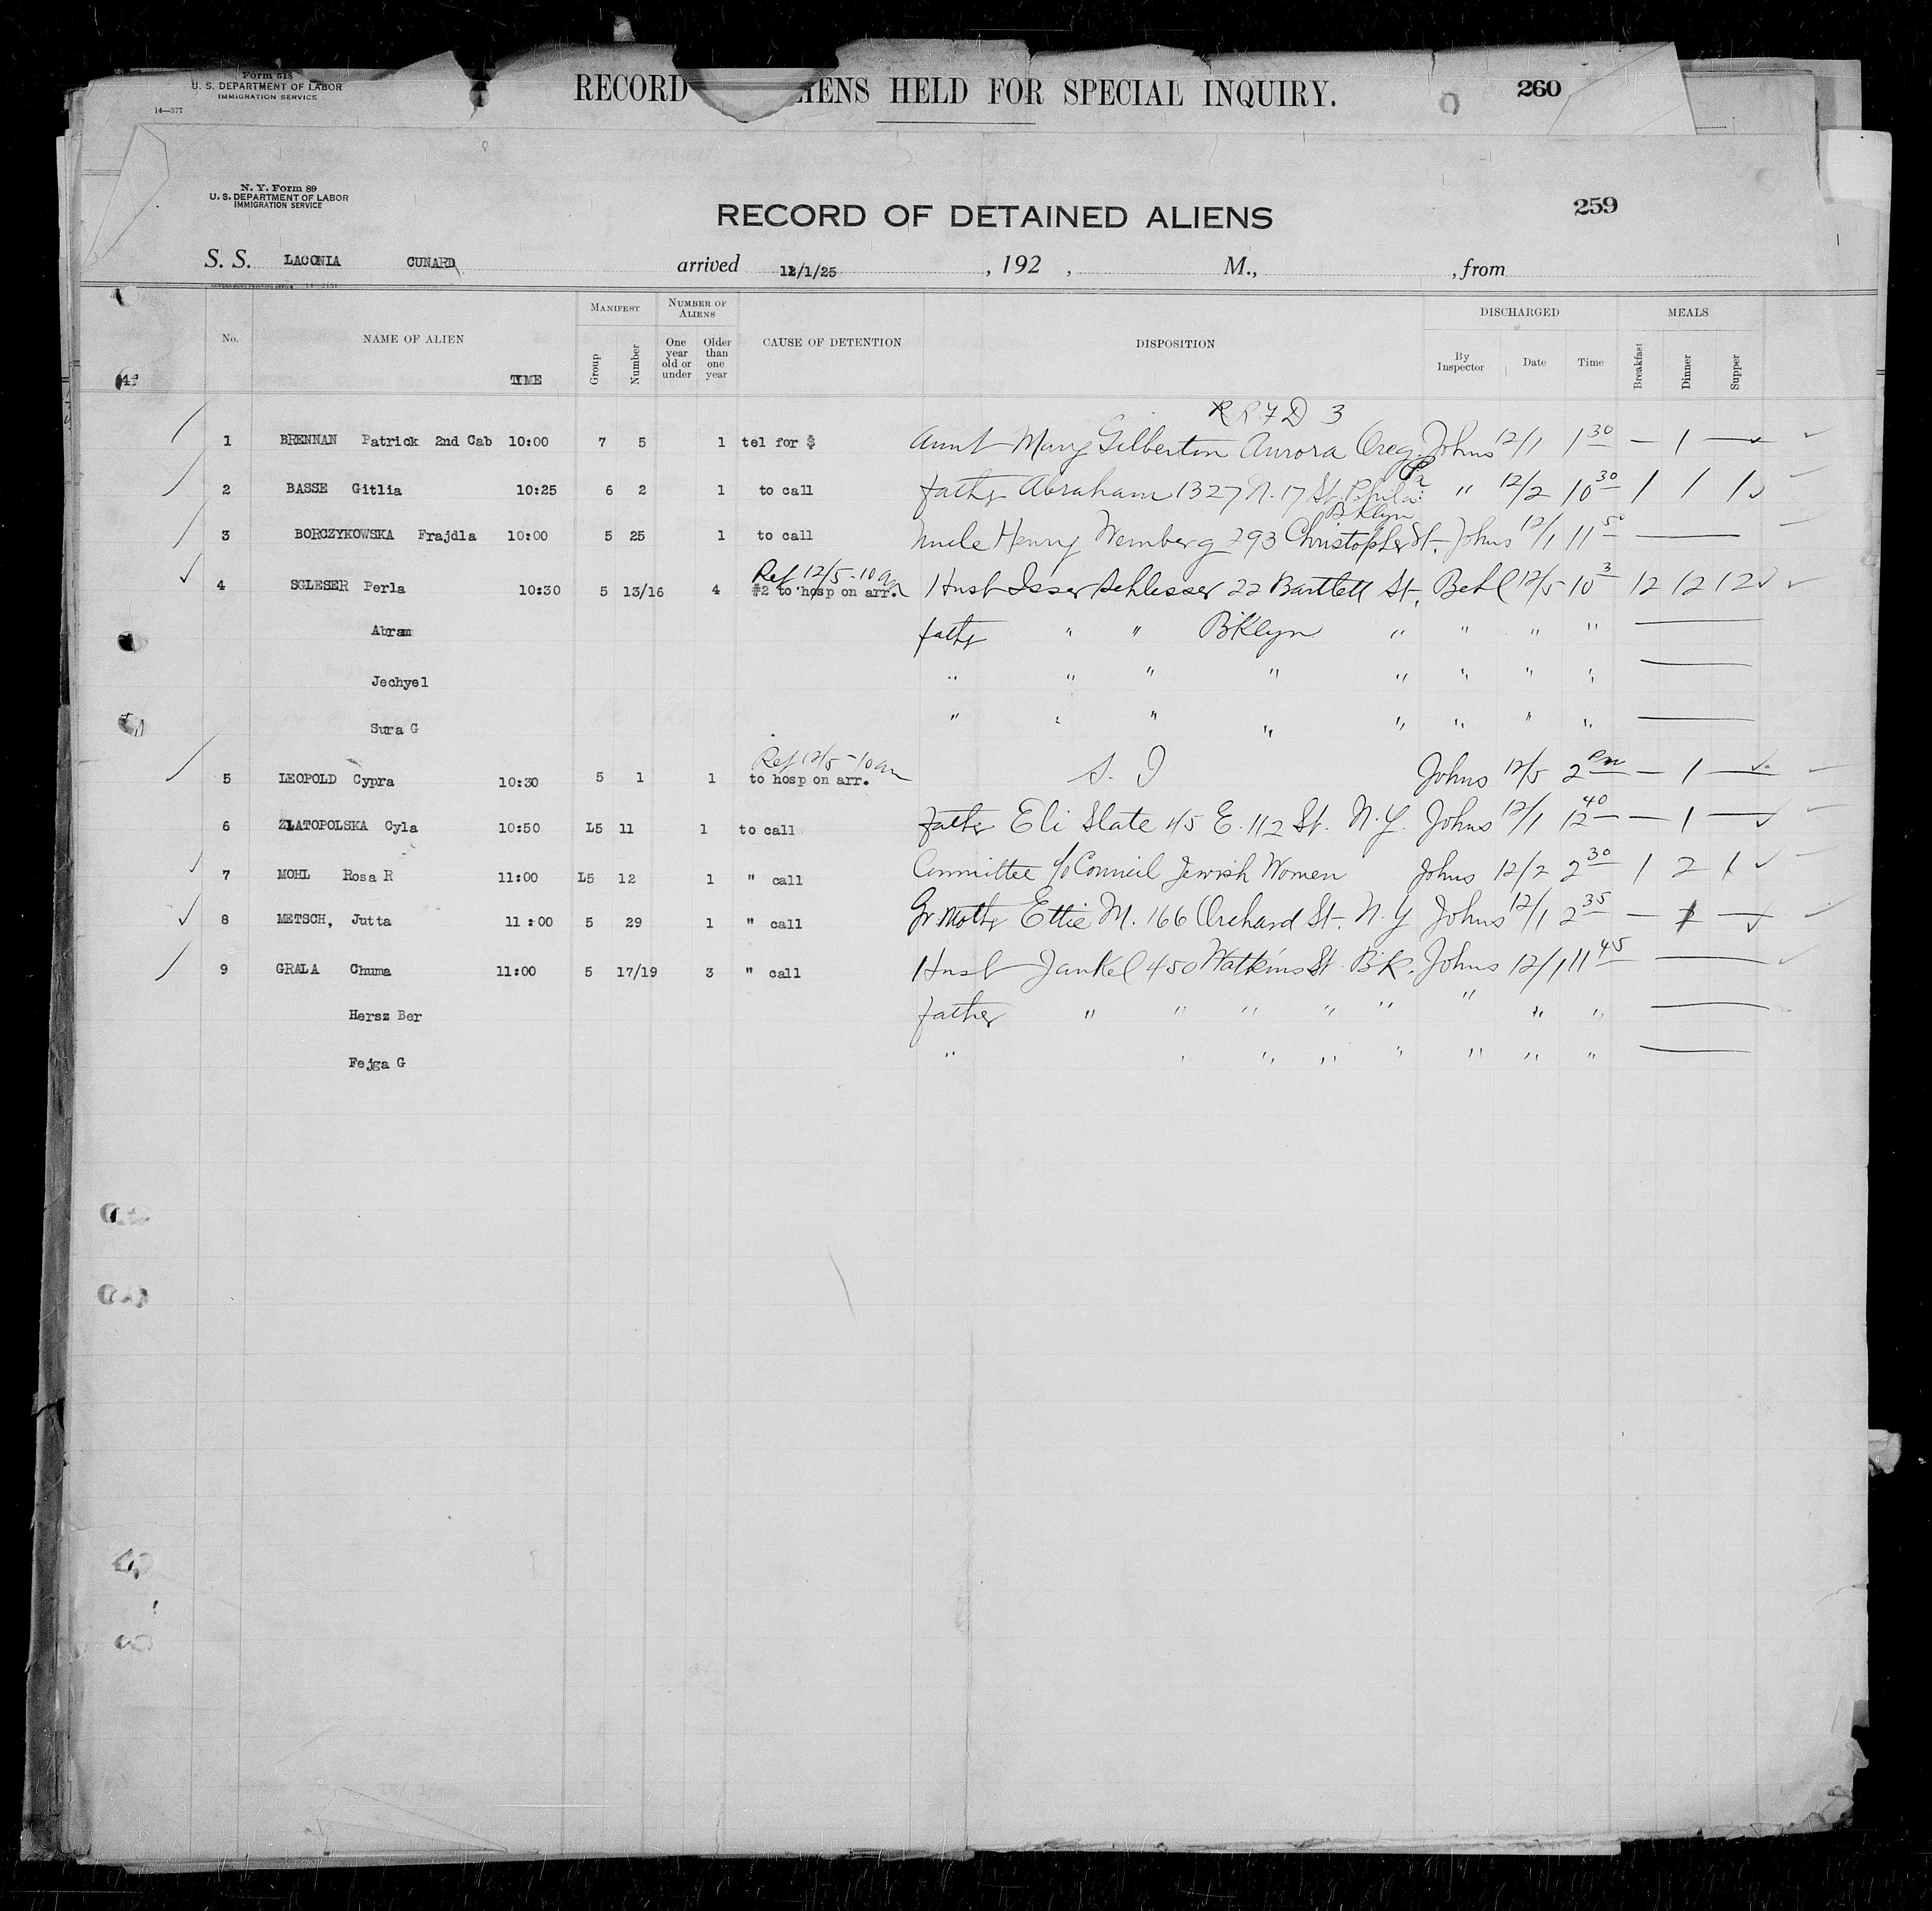 Form 518
U. S. DEPARTMENT OF LABOR
IMMIGRATION SERVICE
14—377
RECORD IENS HELD FOR SPECIAL INQUIRY.
260
N. Y. Form 89
U. S. DEPARTMENT OF LABOR
IMMIGRATION SERVICE
RECORD OF DETAINED ALIENS
259
S. S. LACONIA CUNARD arrived 12/1/25 , 192 , M., , from
No. NAME OF ALIEN TIME MANIFEST Group Number NUMBER OF ALIENS One year old or under Older than one year CAUSE OF DETENTION DISPOSITION DISCHARGED By Inspector Date Time MEALS Breakfast Dinner Supper
R R 7 D 3
1 BRENNAN Patrick 2nd Cab 10:00 7 5 1 tel for $ Aunt Mary Gilberton Aurora Oreg. Johns 12/1 1 30 — 1 —
Pa
2 BASSE Gitlia 10:25 6 2 1 to call father Abraham 1327 N. 17 St. Phila. " 12/2 10 30 1 1 1
Bklyn
3 BORCZYKOWSKA Frajdla 10:00 5 25 1 to call Uncle Henry Wemberg 293 Christopher St. Johns 12/1 11 50 —
Ref 12/5 - 10 am
4 SGLESER Perla 10:30 5 13/16 4 #2 to hosp on arr. Husb Isser Schlesser 22 Bartlett St. Behl 12/5 10 3 12 12 12
Abram father " " Bklyn " " " " —
Jechyel " " " " " " " " —
Sura G " " " " " " " " —
Ref 12/5 - 10 am
5 LEOPOLD Cypra 10:30 5 1 1 to hosp on arr. S. I Johns 12/5 2 pm — 1 —
6 ZLATOPOLSKA Cyla 10:50 L5 11 1 to call father Eli Slate 45 E. 112 St. N.Y. Johns 12/1 12 40 — 1 —
7 MOHL Rosa R 11:00 L5 12 1 " call Committee c/o Council Jewish Women Johns 12/2 2 30 1 2 1
8 METSCH, Jutta 11:00 5 29 1 " call Gr Mother Ettie M. 166 Orchard St. N.Y Johns 12/1 2 35 — 1 —
9 GRALA Chuma 11:00 5 17/19 3 " call Husb Jankel 450 Watkins St. Bk. Johns 12/1 11 45 —
Hersz Ber father " " " " " " " " —
Fejga G " " " " " " " " —